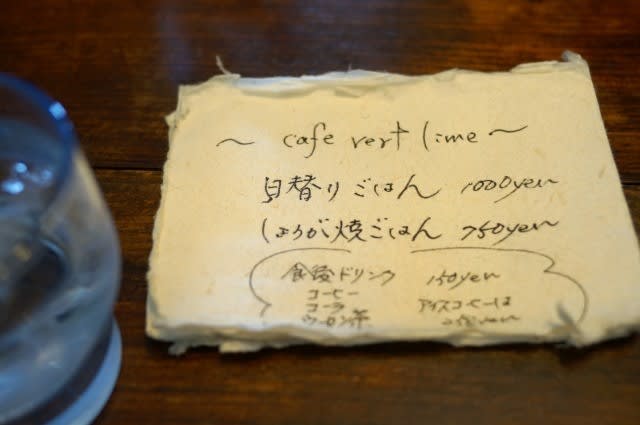 ～ cafe vert lime ～
日替りごはん 1000yen
しょうが焼ごはん 750yen
食後ドリンク 150yen
コーヒー
コーラ アイスコーヒーは
ウーロン茶